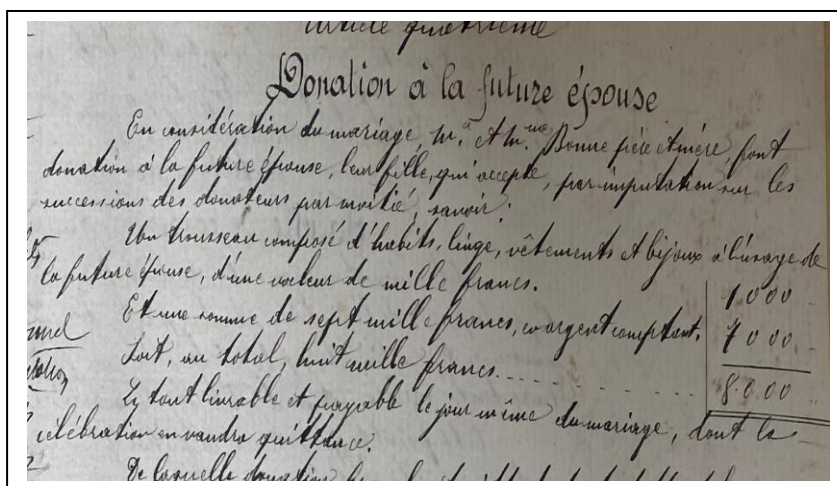 Article quatrième
Donation à la future épouse
En considération du mariage, M. et Mme Bonne père et mère, font
donation à la future épouse, leur fille, qui accepte, par imputation sur les
successions des donateurs par moitié, savoir:
Un trousseau composé d'habits, linge, vêtements et bijoux à l'usage de
la future épouse, d'une valeur de mille francs. 1000
Et une somme de sept mille francs, en argent comptant. 7000
Soit, au total, huit mille francs. 8000
Le tout livrable et payable le jour même du mariage, dont la
célébration en vaudra quittance.
De laquelle donation